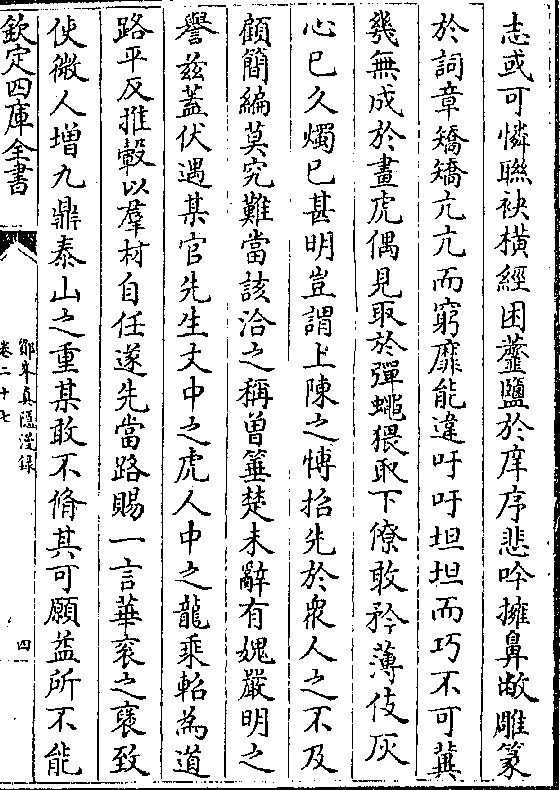 志或可憐聯袂橫經困虀鹽於庠序悲吟擁鼻敝雕篆
於詞章矯矯亢亢而窮靡能違吁吁坦坦而巧不可冀
幾無成於畫虎偶見取於彈蠅猥取下僚敢矜薄伎灰
心已久燭已甚明豈謂上陳之慱招先於衆人之不及
顧簡編莫究難當該洽之稱曽箠楚未辭有媿嚴明之
譽兹蓋伏遇某官先生文中之虎人中之龍乘軺為道
路平反推轂以羣材自任遂先當路賜一言華衮之襃致
使微人增九鼎泰山之重某敢不脩其可願益所不能
欽定四庫全書
鄮峯真隱漫録
卷二十七
四